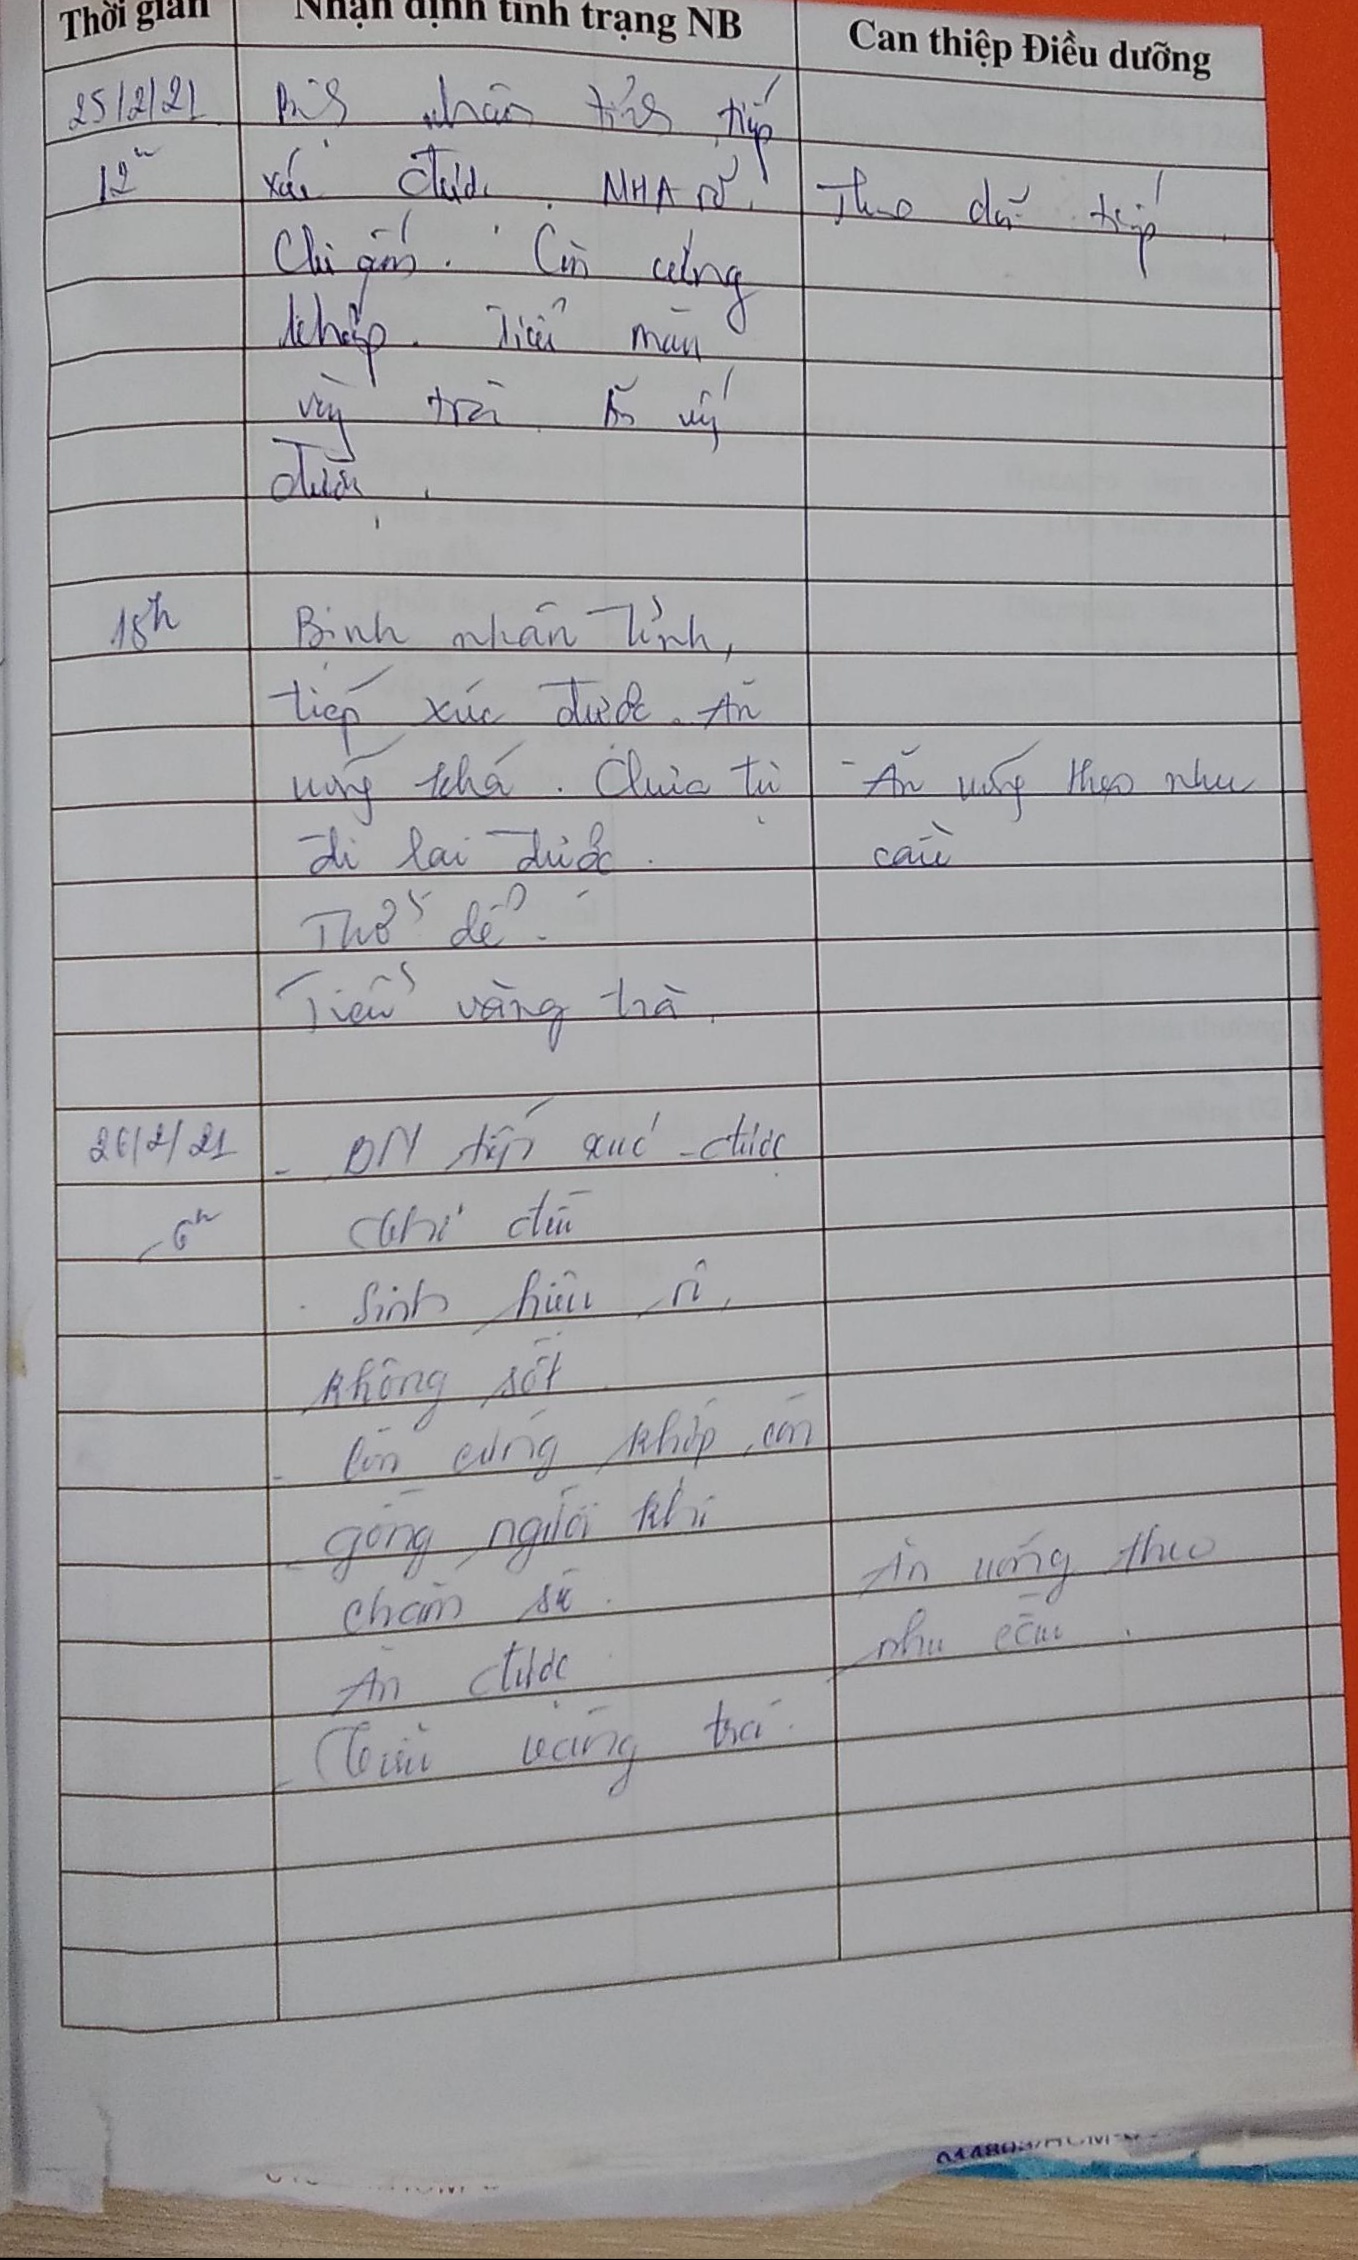 Thời gian Nhận định tình trạng NB Can thiệp Điều dưỡng
25/2/21 nhân tỉnh tiếp
12h xúc được. NHA rõ. Theo dõi tiếp
Chi ấm. Còn cứng
khớp. Tiểu màu
vàng trà.
được.
18h Bệnh nhân Tỉnh,
tiếp xúc được. Ăn
uống khá. Chưa tự - Ăn uống theo nhu
đi lại được. cầu
Thở dễ.
Tiểu vàng trà.
26/2/21 - BN tiếp xúc được
6h
Sinh hiệu
không sốt
- Còn cứng khớp, còn
- gồng người khi
chăm Ăn uống theo
Ăn được nhu cầu.
- vàng trà.